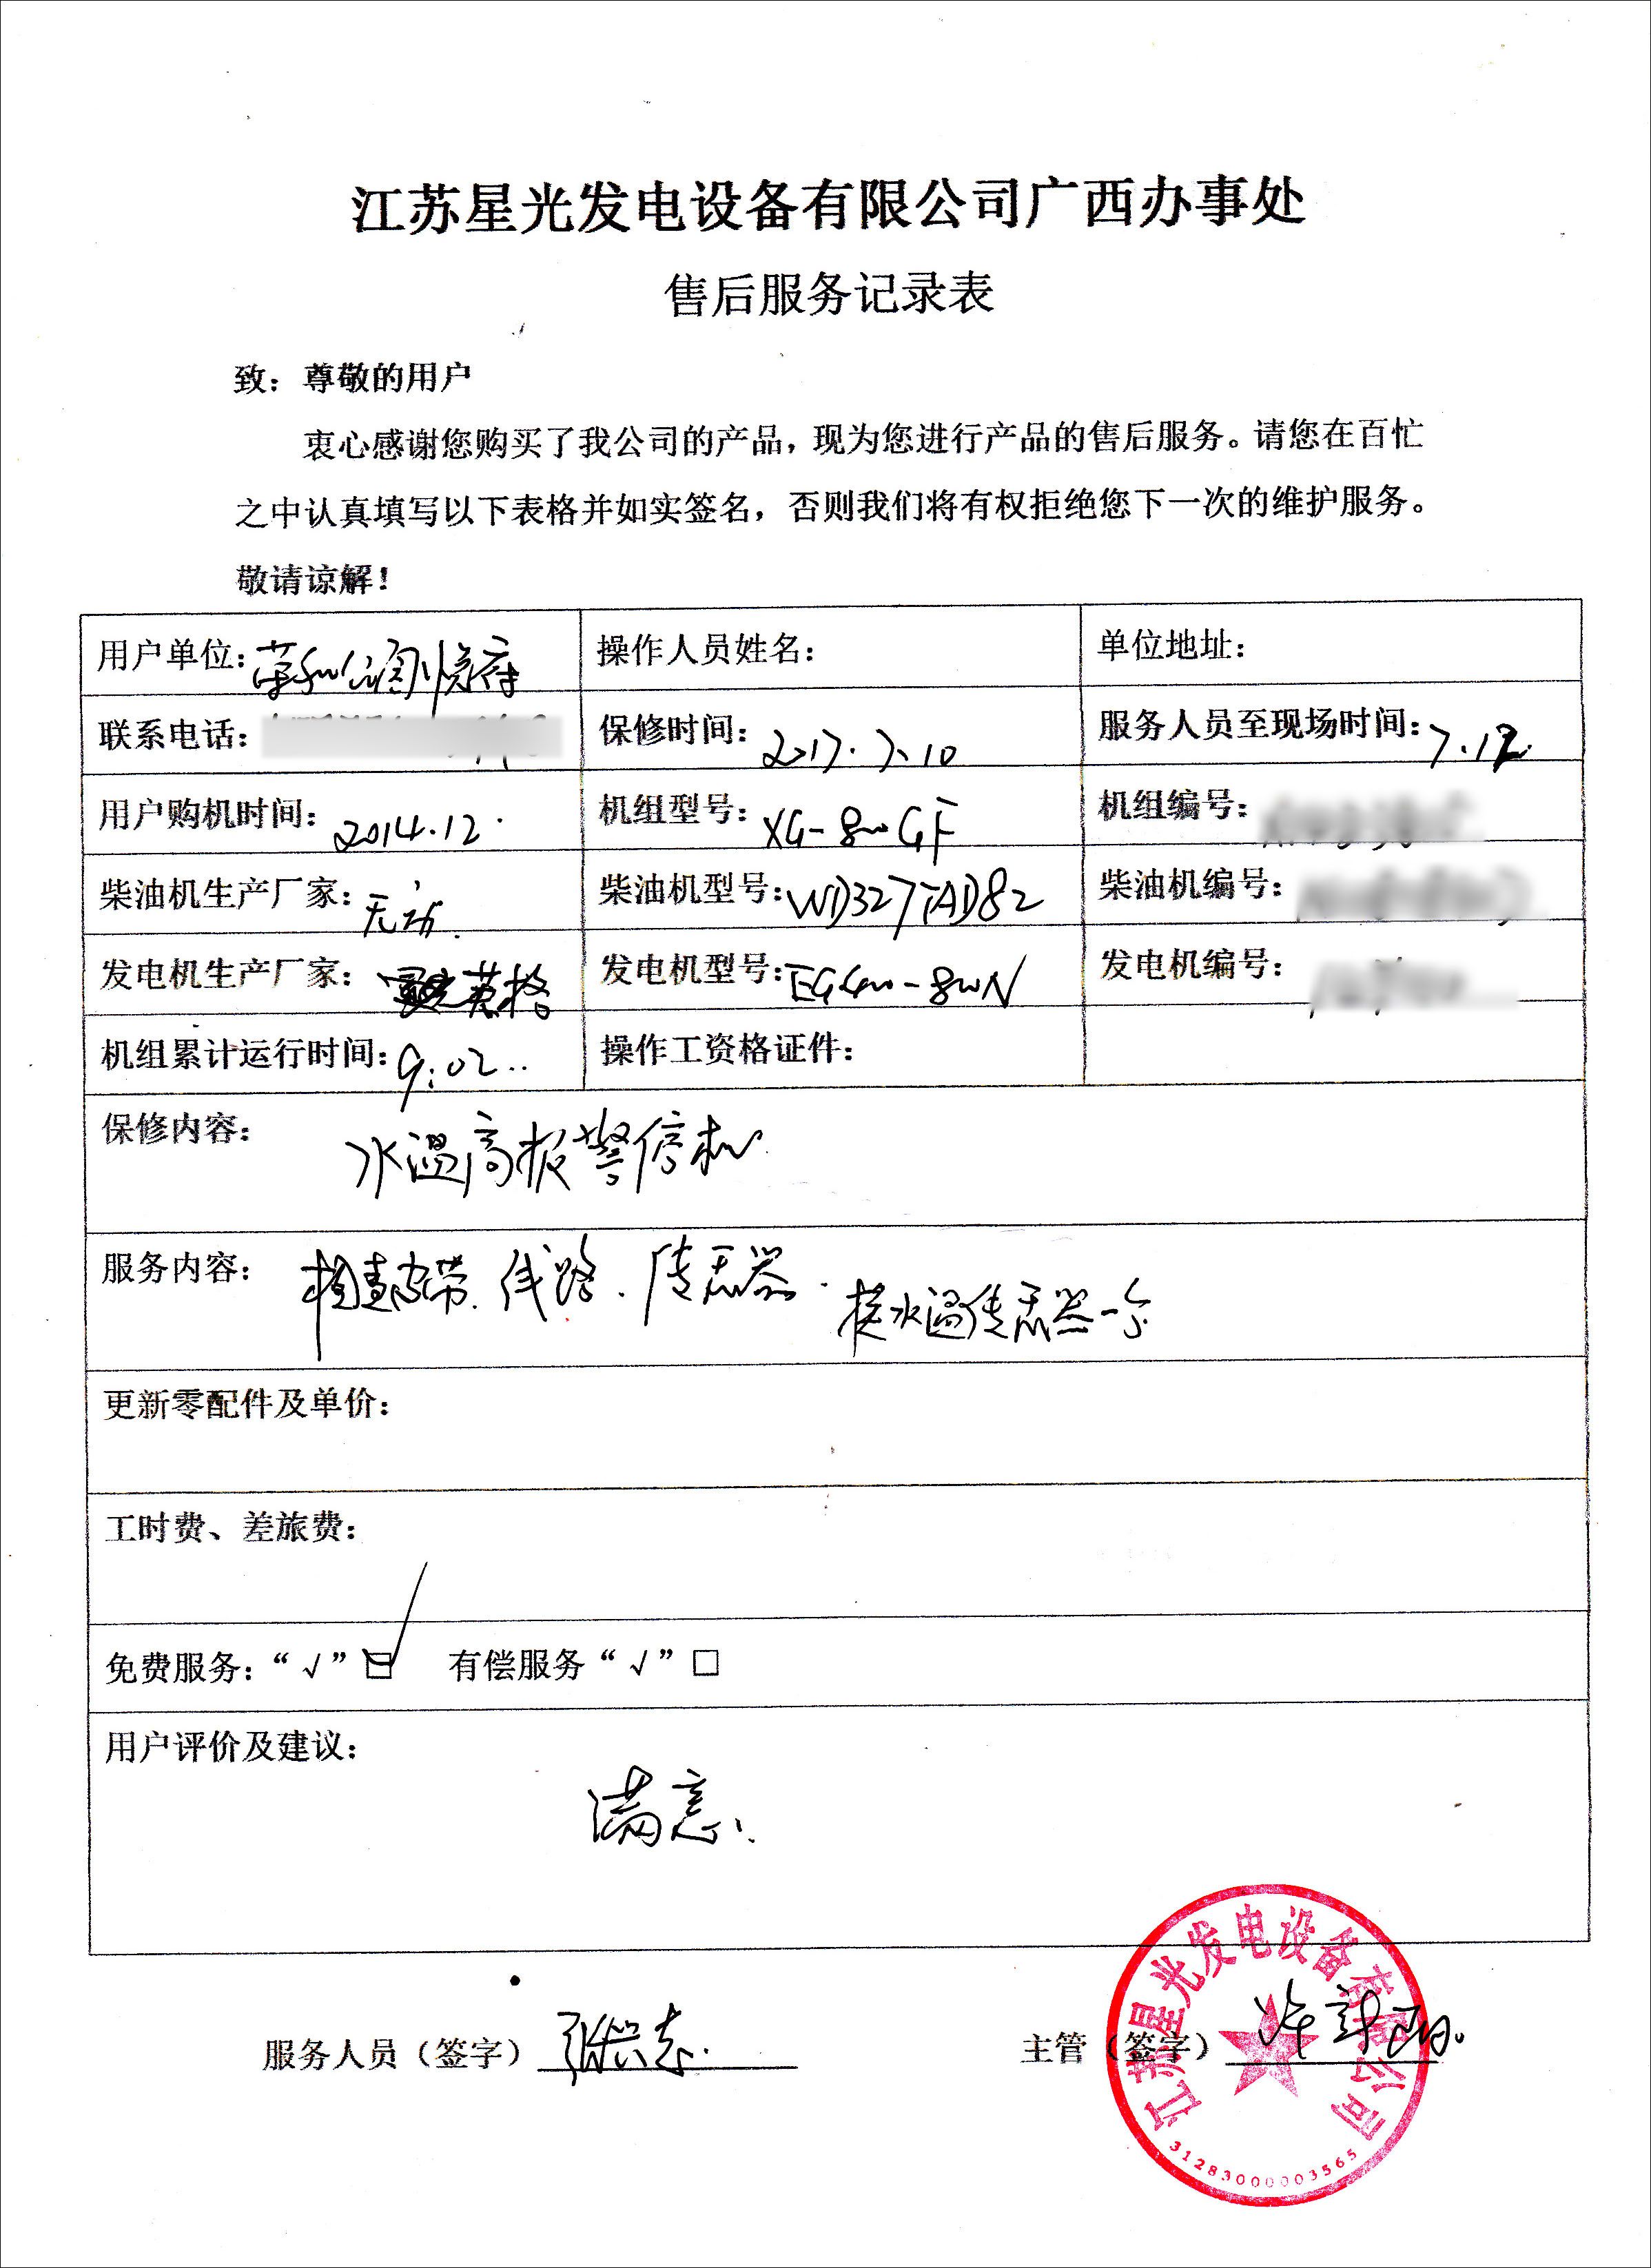 江苏星光发电设备有限公司广西办事处
售后服务记录表
致：尊敬的用户
衷心感谢您购买了我公司的产品，现为您进行产品的售后服务。请您在百忙
之中认真填写以下表格并如实签名，否则我们将有权拒绝您下一次的维护服务。
敬请谅解！
用户单位：荣和公园悦府 操作人员姓名： 单位地址：
联系电话： 保修时间：2017.7.10 服务人员至现场时间：7.12
用户购机时间：2014.12. 机组型号：XG-800GF 机组编号：
柴油机生产厂家：无动. 柴油机型号：WD327TAD82 柴油机编号：
发电机生产厂家：英格 发电机型号：EG400-800N 发电机编号：
机组累计运行时间：9:02.. 操作工资格证件：
保修内容：水温高报警停机.
服务内容：检查皮带、线路、传感器. 换水温传感器一个
更新零配件及单价：
工时费、差旅费：
免费服务：“√”☑ 有偿服务“√”□
用户评价及建议：
满意.
服务人员（签字） 主管（签字）
江苏星光发电设备有限公司
3128300003565